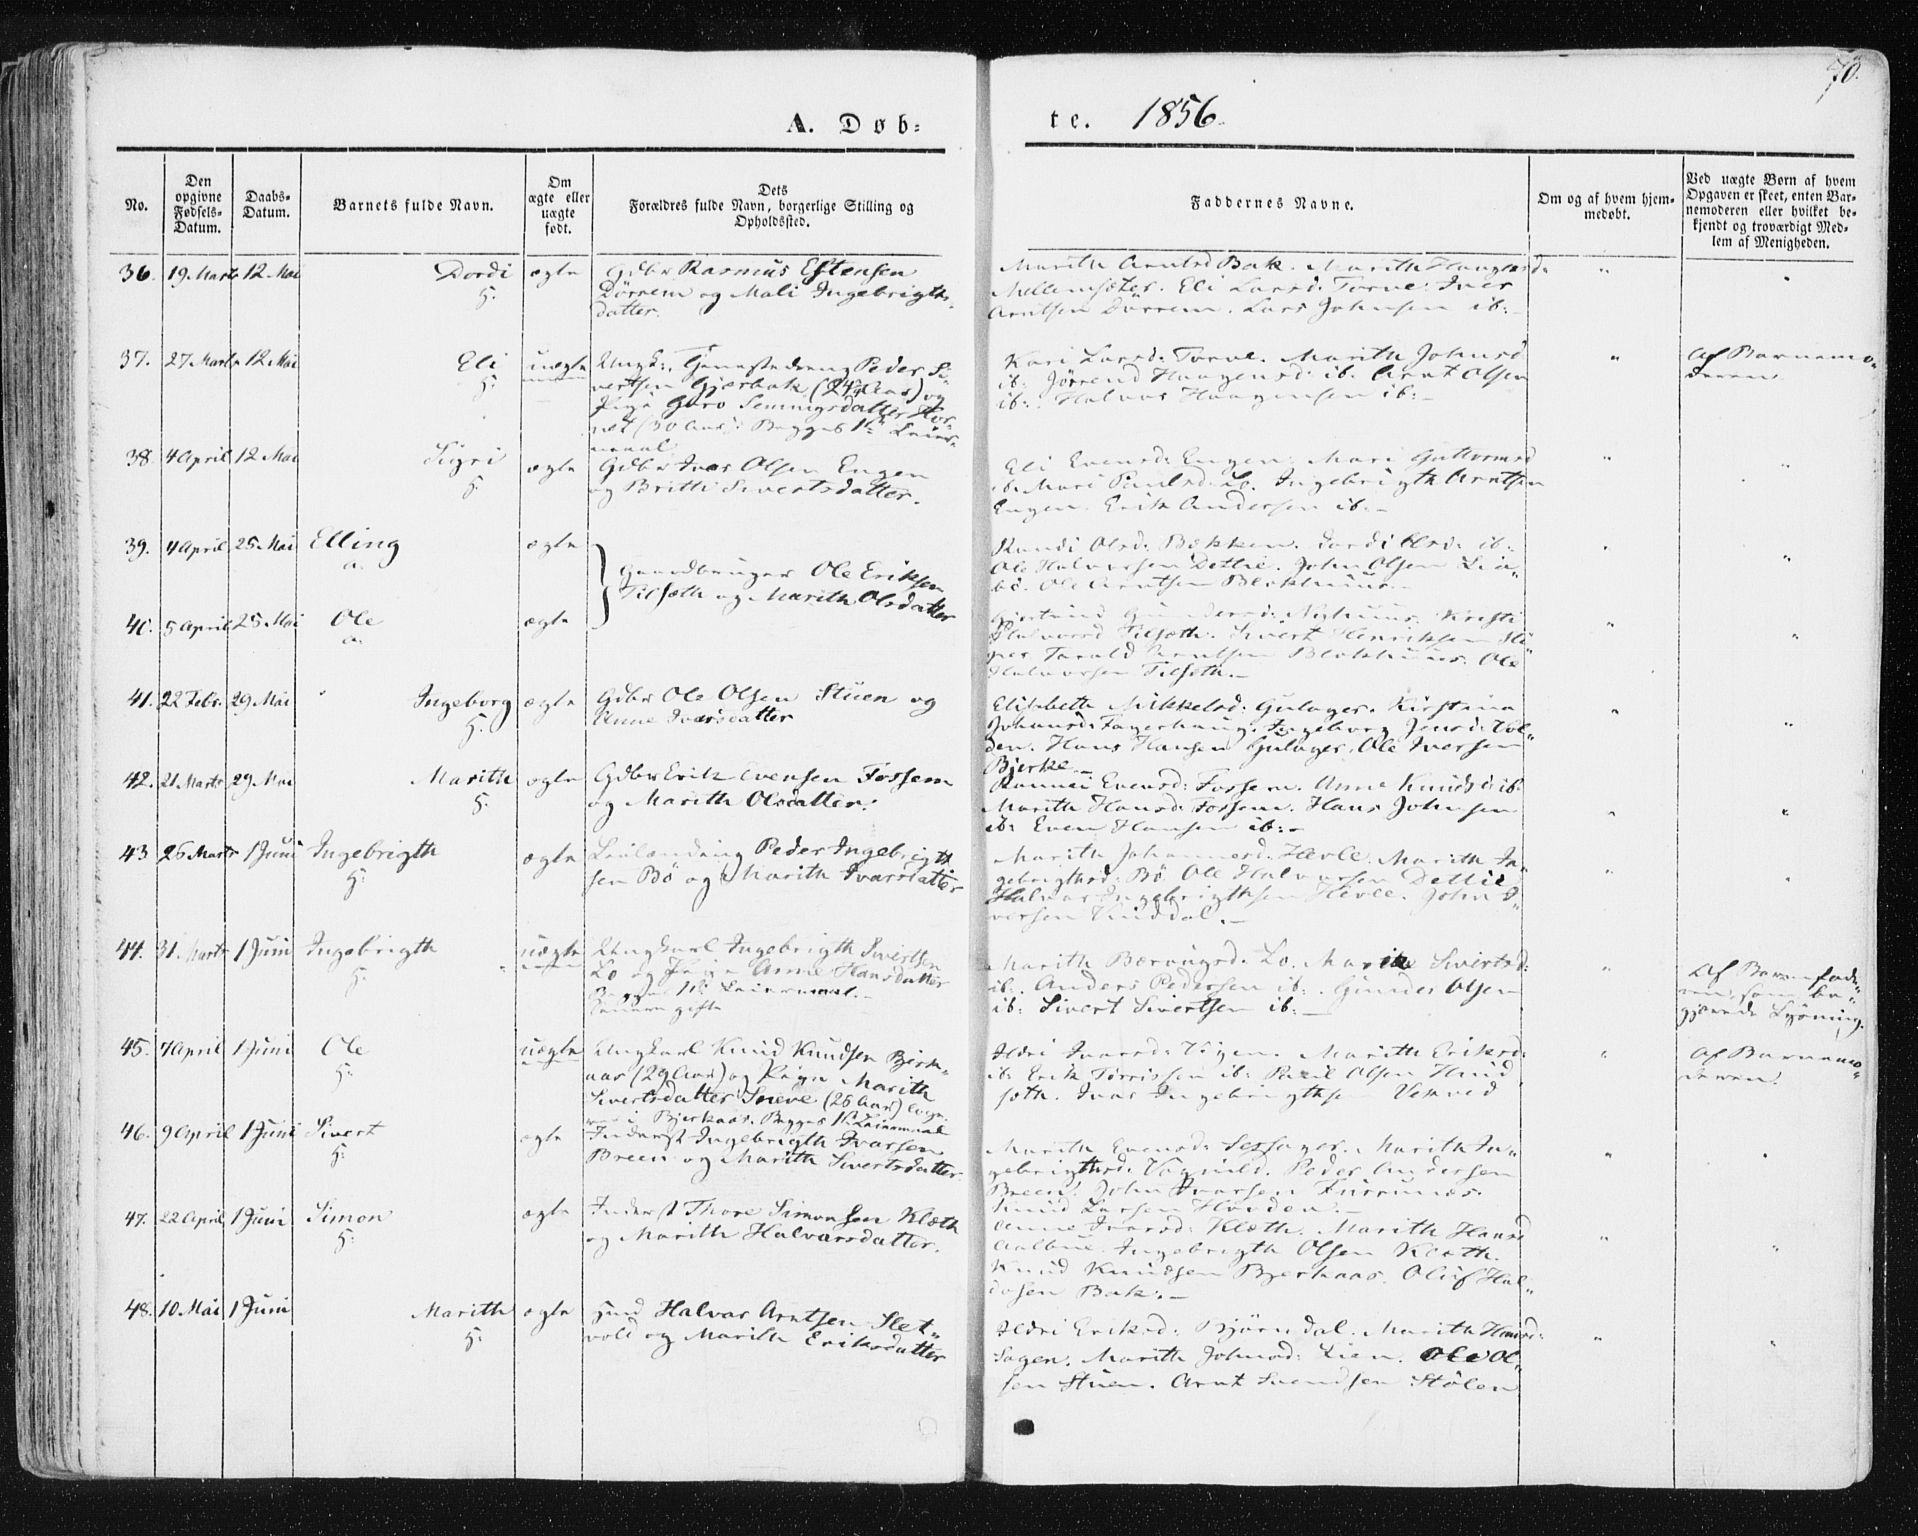 70.
A. Døb-
te. 1856.
No.
Den opgivne Fødsels-Datum.
Daabs-Datum.
Barnets fulde Navn.
Om ægte eller uægte født.
Dets Forældres fulde Navn, borgerlige Stilling og Opholdssted.
Faddernes Navne.
Om og af hvem hjemmedøbt.
Ved uægte Børn af hvem Opgaven er skeet, enten Barnemoderen eller hvilket bekjendt og troværdigt Medlem af Menigheden.
36. 19. Marts 12 Mai Dordi ægte Gdbr Rasmus Estensen
H.
Dörrem og Mali Ingebrigts-
datter.
Marith Arntsd Bak. Marith Haagensd:
Mellemsæter. Eli Larsd: Torve. Iver
Arntsen Dörrem. Lars Johnsen ib:
37. 27 Marts 12 Mai Eli uægte Ungk:, Gaardsdreng Peder Si-
H.
vertsen Gjerbak (24 Aar) og
Pige Guro Semmingsdatter
(30 Aar). Begges 1ste Leier-
maal
Kari Larsd: Torve. Marith Johnsd
ib: Jörrend Haagensd: ib. Arnt Olsen
ib: Halvor Haagensen ib:
Af Barnemo-
deren.
38 4 April 12 Mai Sigri ægte Gdbr Ivar Olsen Engen
H.
og Britti Sivertsdatter.
Eli Evensd: Engen. Mari Guttormsd
ib. Mari Paulsd: ib. Ingebrigth Arntsen
Engen. Erik Andersen ib.
39. 4 April 25 Mai Elling ægte
a.
Gaardbruger Ole Eriksen
Tilseth og Marith Olsdatter
Randi Olsd: Bækken. Dordi Olsd: ib:
Ole Halvorsen Detlie. John Olsen Lia-
bö. Ole Arntsen Blokhuus
40. 5 April 25 Mai Ole ægte
a.
Gjertrud Gundersd: Nyhuus. Kirsti
Halvorsd Tilseth. Sivert Henriksen
Tarald Arntsen Blokhuus. Ole
Halvorsen Tilseth.
41. 22 Febr. 29 Mai Ingeborg ægte Gdbr Ole Olsen Stuen og
H.
Anne Ivarsdatter
Elisabeth Mikkelsd: Gulager. Kirstina
Johansd: Fagerhaug. Ingeborg Jensd: Vol-
den. Hans Hansen Gulager. Ole Iversen
Bjerke.
42. 21 Marts 29 Mai Marith ægte Gdbr Erik Evensen Fossem
H.
og Marith Olsdatter.
Rannei Evensd: Fossem. Anne Knudsd: ib:
Marith Hansd: Fossem. Hans Johnsen
ib: Even Hansen ib:
43 26 Marts 1 Juni Ingebrigth ægte Leilænding Peder Ingebrigt
H.
sen Bö og Marith Ivarsdatter
Marith Johannesd: Hevle. Marith In-
gebrigthsd: Bö. Ole Halvorsen Detlie
Halvor Ingebrigthsen Hevle. John I-
versen Vinddal.
44. 31 Marts 1 Juni Ingebrigth uægte Ungkarl Ingebrigth Sivertsen
H.
Lo og Pige Anne Hansdatter
Begges 1ste Leiermaal.
Senere gifte
Marith Bæringsd. Lo. Marith Sivertsd:
ib: Anders Pedersen ib: Gunder Olsen
ib: Sivert Sivertsen ib:
Af Barnefade-
ren, som be-
gjærede Lysning.
45. 7 April 1 Juni Ole uægte Ungkarl Knud Knudsen Bjerk-
H.
aas (29 Aar) og Pigen Marith
Sivertsdatter Sneve (26 Aar)
i Bjerkaas. Begges 1ste Leiermaal
Ildri Ivarsd: Vigen. Marith Eriksd:
ib: Erik Törrissen ib: Paul Olsen Hind
seth. Ivar Ingebrigthsen
Af Barnemo-
deren.
46. 9 April 1 Juni Sivert ægte Inderst Ingebrigth Ivarsen
H:
Breen og Marith Sivertsdatter
Marith Evensd: Sessager. Marith In-
gebrigthsd: Vognild. Peder Andersen
Breen. John Ivarsen Furrunæs.
Knud Larsen Hovden.
47. 22 April 1 Juni Simon ægte Inderst Thore Simonsen Klæth
H:
og Marith Halvorsdatter.
Anne Ivarsd: Klæth. Marith Hansd
Aalbue. Ingebrigth Olsen Klæth.
Knud Knudsen Bjerkaas. Oluf Hal-
dosen Bak.
48. 10 Mai 1 Juni Marith ægte Hmd Halvor Arntsen Slet-
H:
vold og Marith Eriksdatter
Ildri Eriksd: Björndal. Marith
Sagen. Marith Johnsd: Lien. Ole Ol-
sen Stuen. Arnt Svendsen Stölen